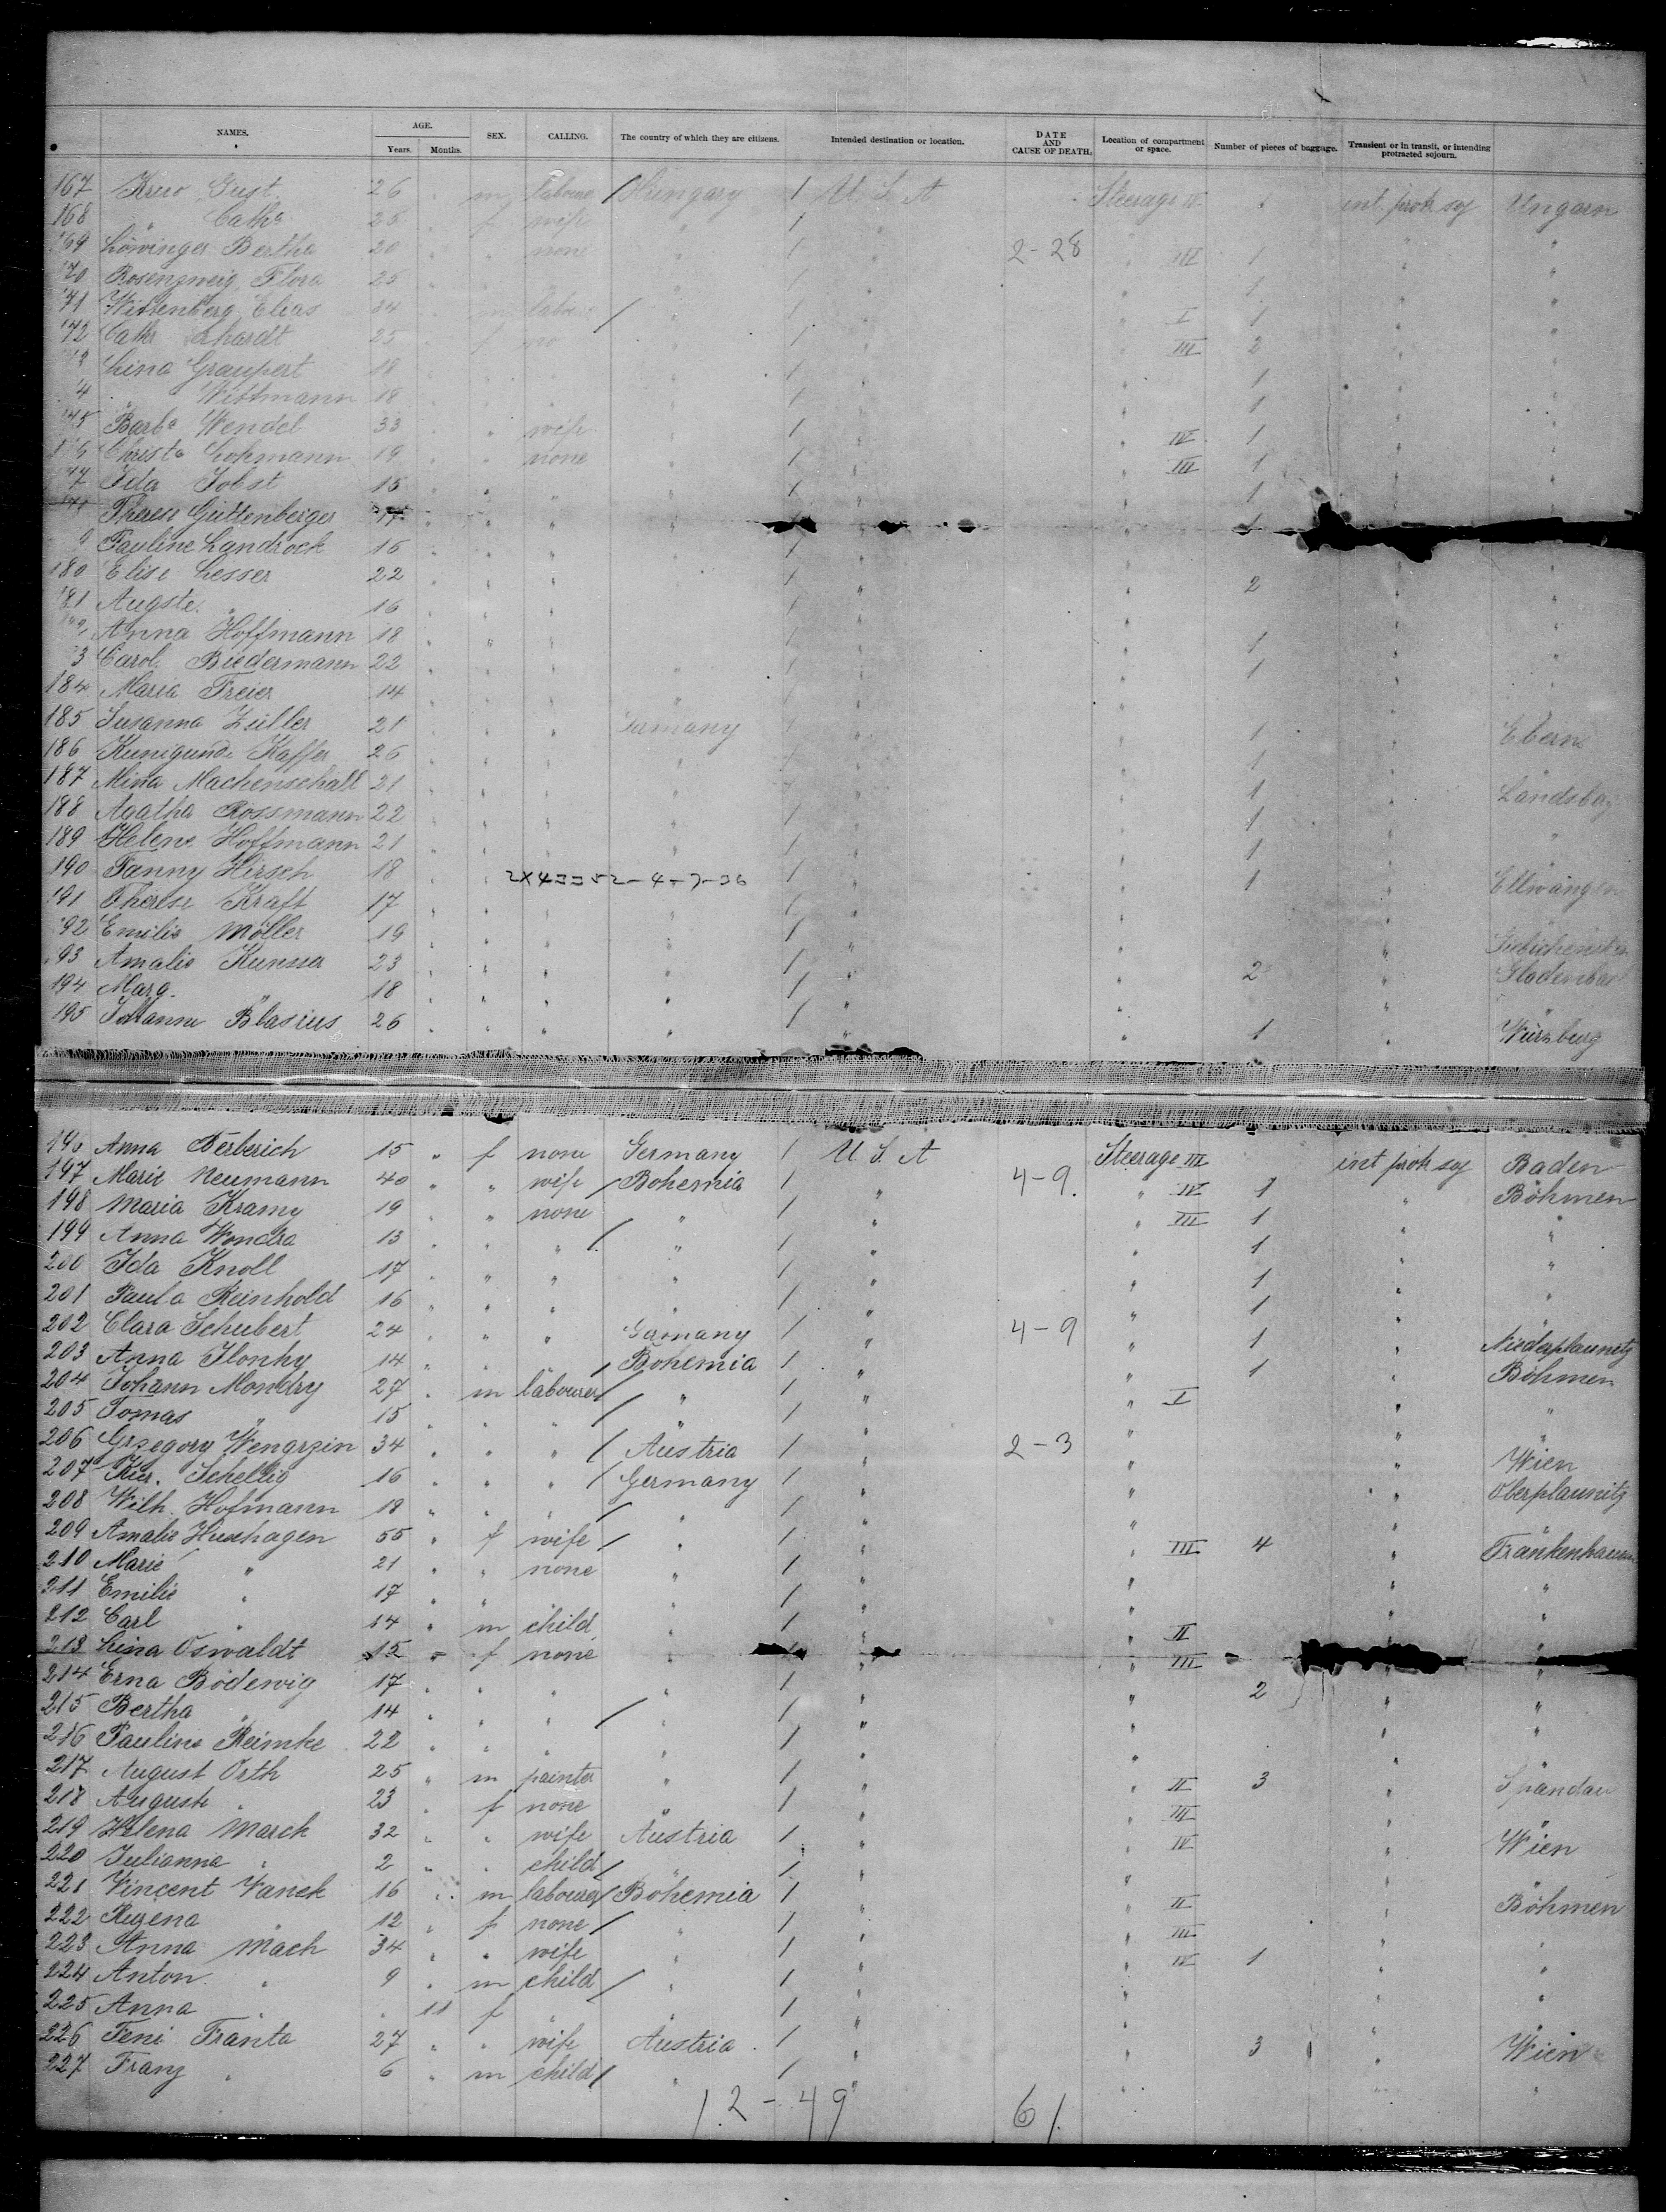 NAMES. AGE. SEX. CALLING. The country of which they are citizens. Intended destination or location. DATE AND CAUSE OF DEATH. Location of compartment or space. Number of pieces of baggage. Transient or in transit, or intending protracted sojourn.
Years. Months.
167 Gust. 26 " m labourer / Hungary 1 U S A Steerage IV int. protr soj Ungarn
168 " Catha 25 " f wife " 1 "
169 Löwinger Bertha 20 " " none " 1 " 2-28 " III 1 " "
170 Rosenzweig, Flora 25 " " " " 1 " " 1 " "
171 Wittenberg, Elias 24 " m labou / " 1 " " I 1 " "
172 Cath 25 " f no " 1 " " III 2 " "
Lina Graupert 18 " " " " 1 " " 1 " "
4 " Wittmann 18 " " " " 1 " " 1 " "
175 Barba Wendel 33 " " wife " 1 " " IV 1 " "
Christa Lohmann 19 " " none " 1 " " III 1 " "
Ida Jobst 15 " " " " 1 " " 1 " "
Therese Güttenberger 17 " " " " " 1 "
9 Pauline Landrock 16 " " " " 1 " " " "
180 Elise Lesser 22 " " " " 1 " " 2 " "
181 Augste. " 16 " " " " 1 " " " "
Anna Hoffmann 18 " " " " 1 " " 1 " "
3 Carol. Biedermann 22 " " " " 1 " " 1 " "
184 Maria Freier 14 " " " " 1 " " " "
185 Susanna Züller 21 " " " Germany 1 " " 1 " Ebern
186 Kunigunde Kaffer 26 " " " " 1 " " 1 "
187 Mina Machenschall 21 " " " " 1 " " 1 " Landsbg
188 Agatha Rossmann 22 " " " " 1 " " 1 " "
189 Helene Hoffmann 21 " " " " 1 " " 1 "
190 Fanny Hirsch 18 " " 1 " " 1 " Ellwangen
191 Therese Kraft 17 " " " " 1 " " "
192 Emilie Möller 19 " " " " 1 " " "
193 Amalie Kunssa 23 " " " " 1 " " 2 "
194 Marg. " 18 " " " " 1 " " "
195 Johanne Blasius 26 " " " " 1 " " 1 " Würzburg
196 Anna Berberich 15 " f none Germany 1 U S A Steerage III int protr soj Baden
197 Marie Neumann 40 " " wife / Bohemia 1 " 4-9. " IV 1 " Böhmen
198 Maria Kramy 19 " " none " 1 " " III 1 " "
199 Anna Wondra 13 " " " / " 1 " " 1 " "
200 Ida Knoll 17 " " " " 1 " " 1 " "
201 Paula Reinhold 16 " " " " 1 " " 1 " "
202 Clara Schubert 24 " " " Germany 1 " 4-9 " 1 " Niederplaunitz
203 Anna 14 " " " / Bohemia 1 " " 1 " Böhmen
204 Johann Mondry 27 " m labourer / " 1 " " I " "
205 Tomas " 15 " " " / " 1 " " " "
206 Grzegory Wengrzin 34 " " " / Austria 1 " 2-3 " " Wien
207 Kur. Schellig 16 " " " / Germany 1 " " " Oberplaunitz
208 Wilh. Hofmann 18 " " " / " 1 " " "
209 Amalie Huxhagen 55 " f wife / " 1 " " III 4 " Frankenhausen
210 Marie " 21 " " none " 1 " " " "
211 Emilie " 17 " " " " 1 " " " "
212 Carl " 14 " m child " 1 " " II "
213 Lina Oswaldt 15 " f none " " " III "
214 Erna Bödewig 17 " " " " 1 " " 2 " "
215 Bertha " 14 " " " / " 1 " " " "
216 Pauline Reimke 22 " " " " 1 " " "
217 August Orth 25 " m painter " 1 " " II 3 " Spandau
218 Auguste " 23 " f none " 1 " " III " "
219 Helena March 32 " " wife Austria 1 " " IV " Wien
220 Julianna " 2 " " child / " 1 " " "
221 Vincent Vanek 16 " m labourer / Bohemia 1 " " II " Böhmen
222 Ruzena " 12 " f none / " 1 " " III " "
223 Anna Mach 34 " " wife " 1 " " IV 1 " "
224 Anton " 9 " m child / " 1 " " " "
225 Anna " " 11 f " " 1 " " " "
226 Feni Franta 27 " " wife Austria 1 " " 3 " Wien
227 Franz " 6 " m child / " 1 " " " "
12 - 49 61